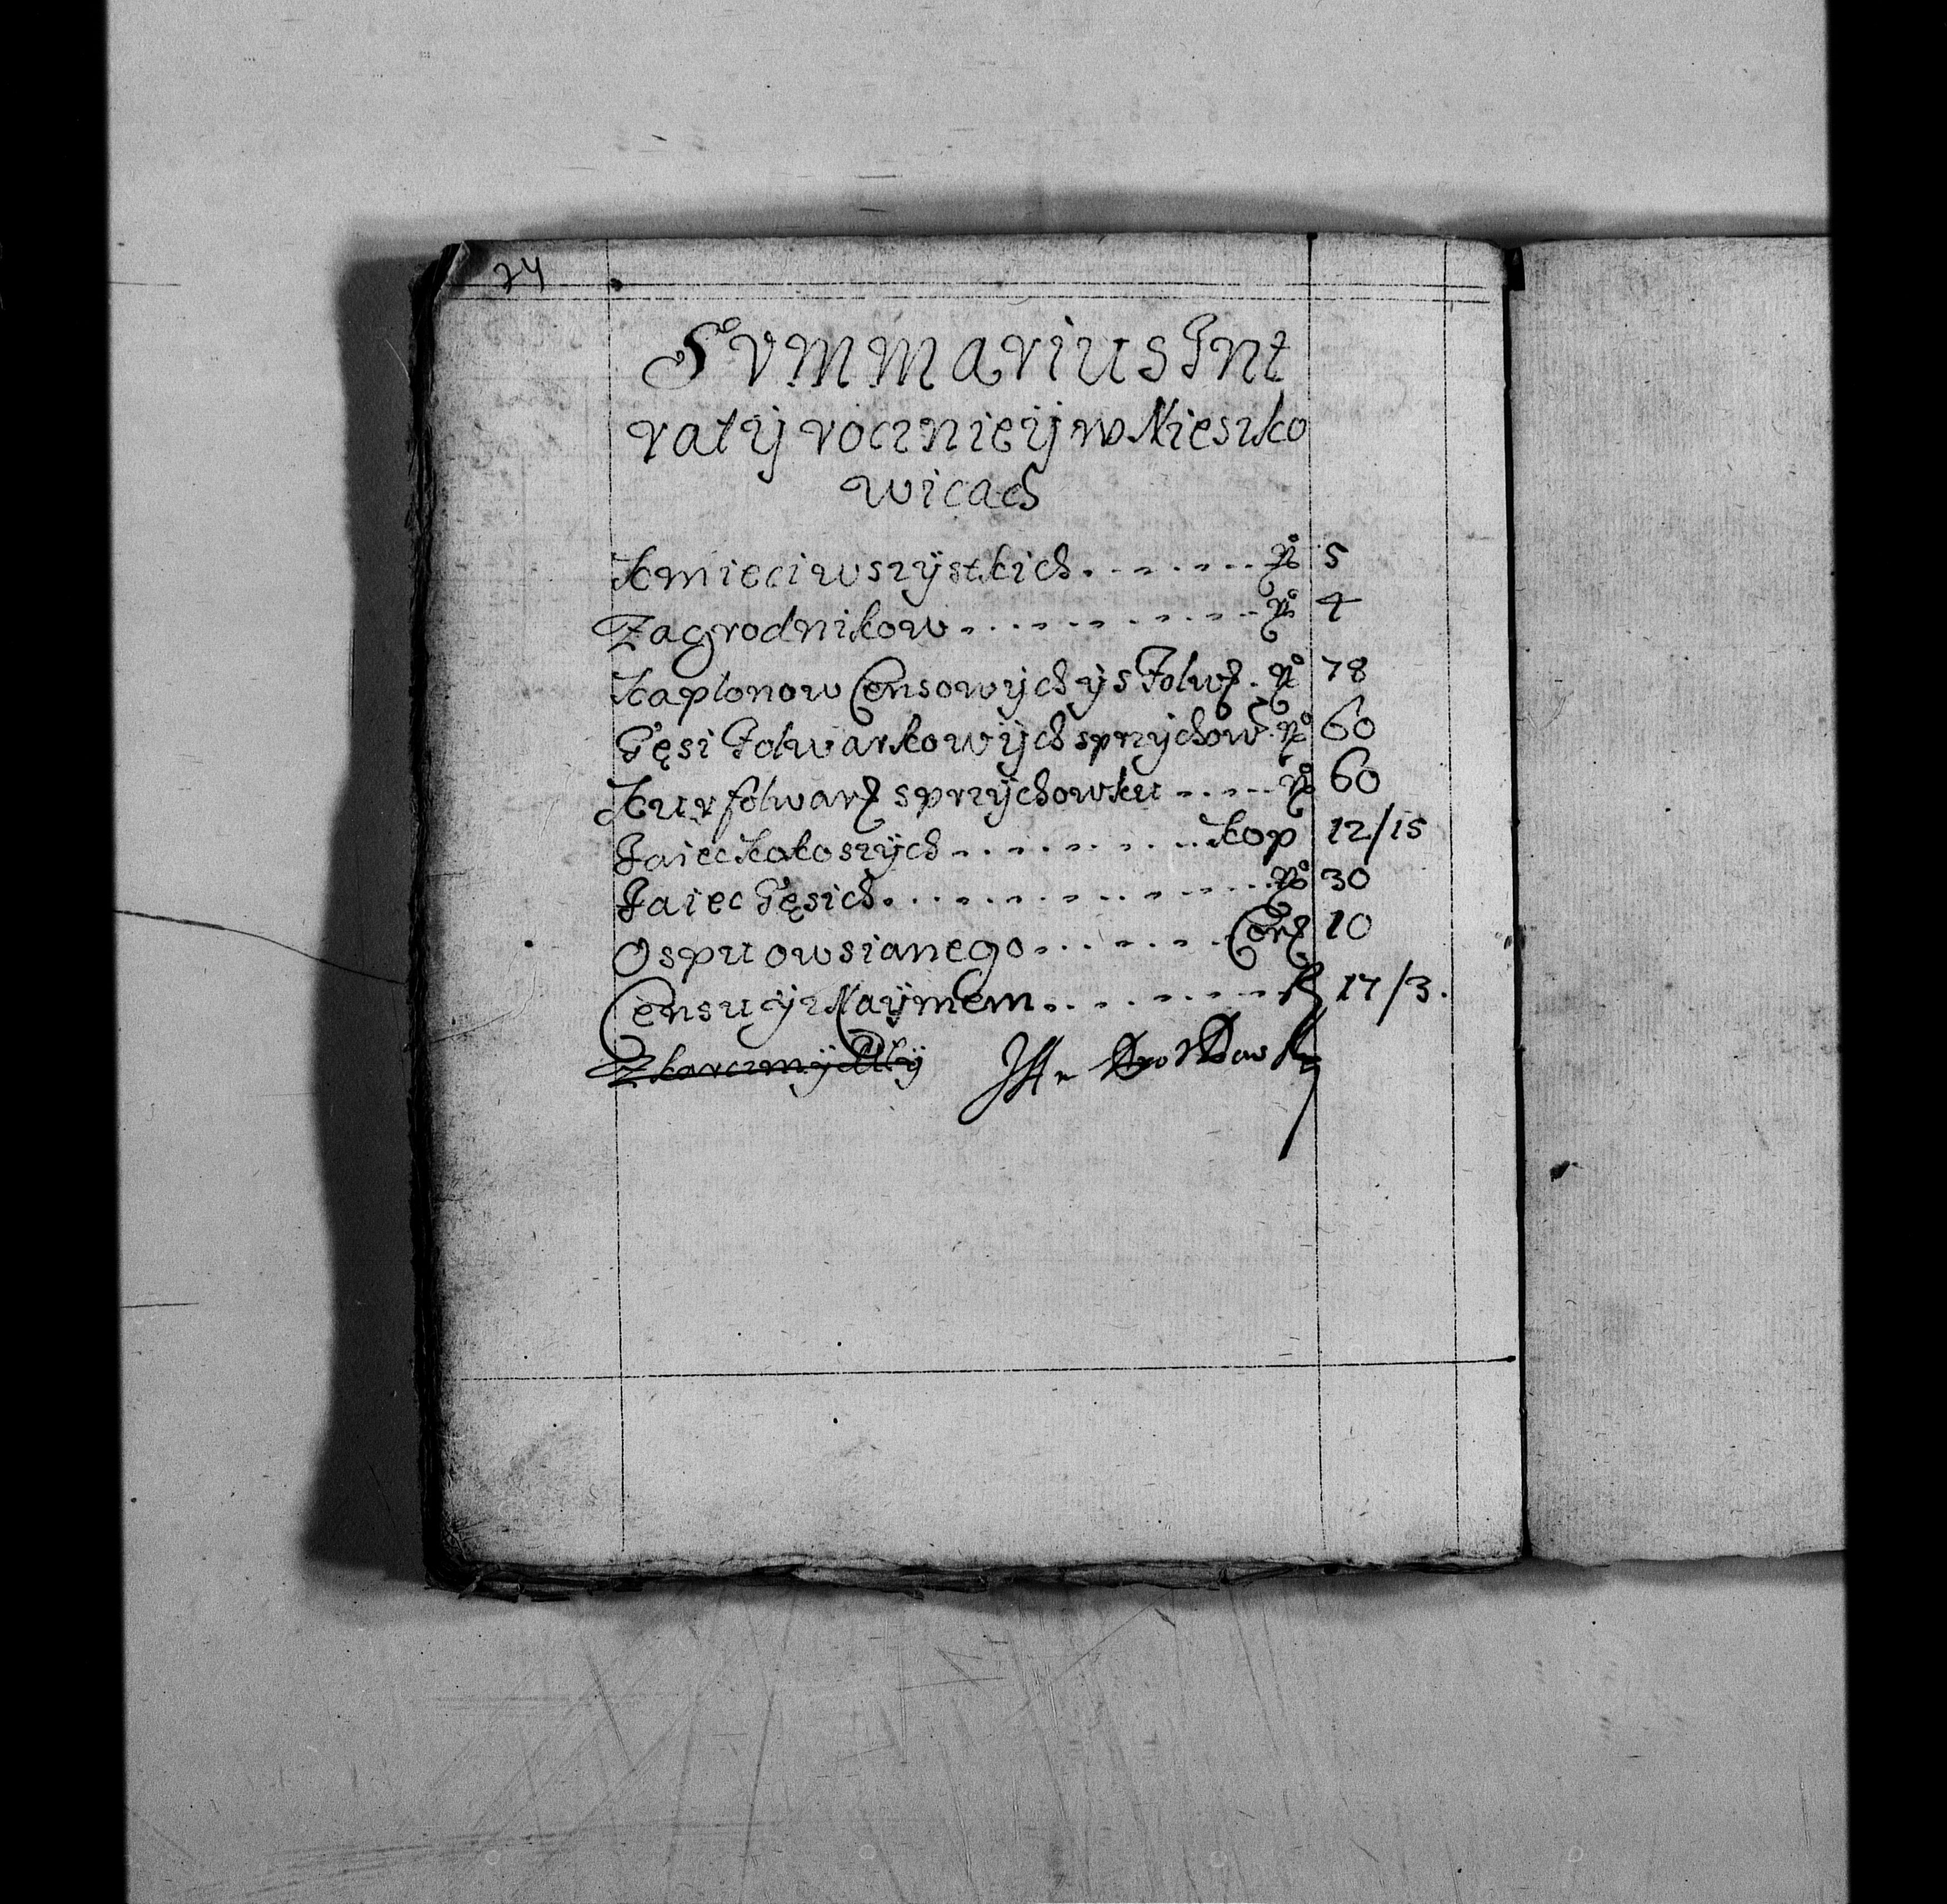 24
Svmmarius Int
raty roczniey w Mieszko
wicach
Kmieci wszÿstkich . . . . . . . No 5
Zagrodnikow . . . . . . . . . No 4
Kaplonow Censowÿch ÿ s Folw. No 78
Gęsi Folwarkowÿch sprzÿchow. No 60
Kur folwark sprzÿchowku . . . . . No 60
Jaiec Kokoszÿch . . . . . . . . kop 12/15
Jaiec Gęsich . . . . . . . . . No 30
Ospu owsianego . . . . . . Cor 10
Censu ÿ z Naÿmem . . . . . . . 17/3.
Z karczmÿ